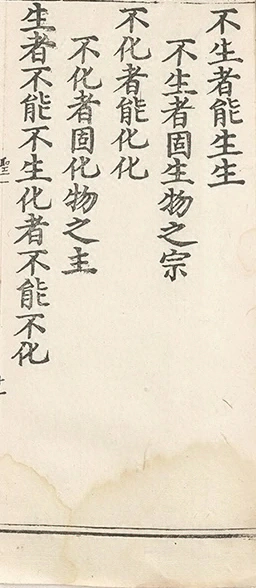 不生者能生生
不生者固生物之宗
不化者能化化
不化者固化物之主
生者不能不生化者不能不化